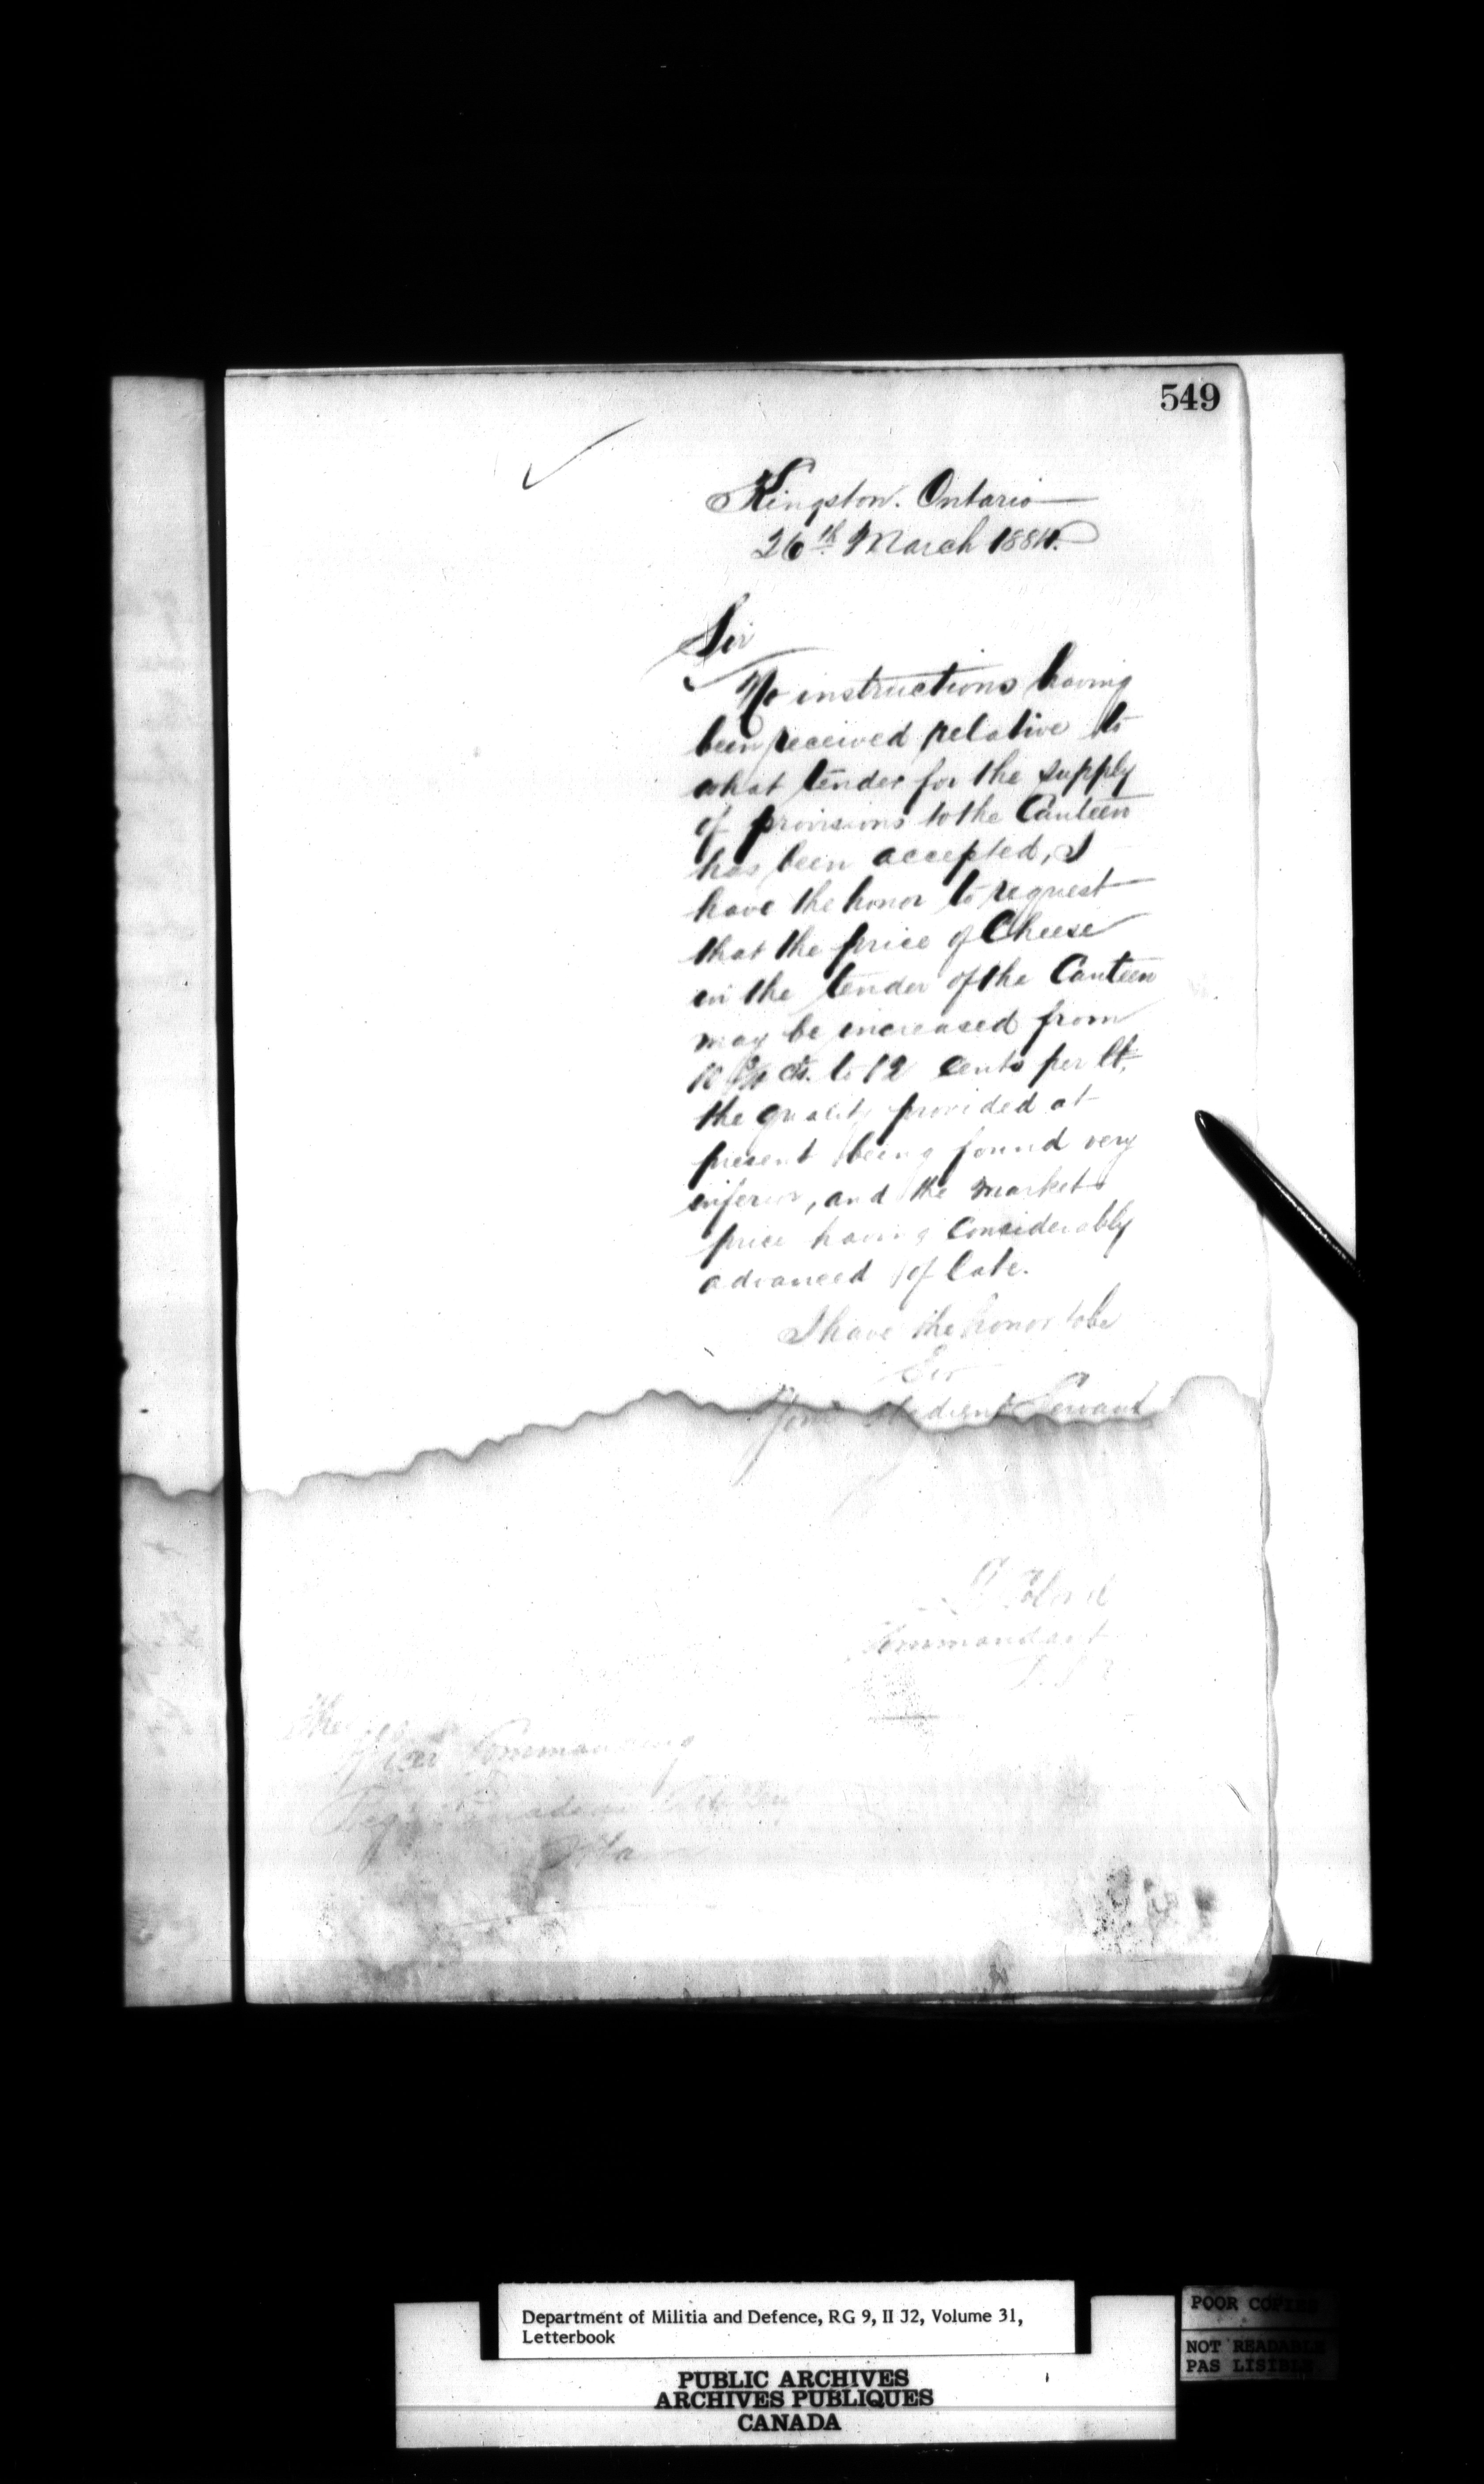 549
Kingston. Ontario
26th March 1884.
Sir
No instructions having
been received relative to
what tender for the supply
of provisions to the Canteen
has been accepted, I
have the honor to request
that the price of Cheese
in the tender of the Canteen
may be increased from
10 cts. to 12 cents per lb,
the quality provided at
present being found very
inferior, and the market
price having considerably
advanced of late.
I have the honor to be
Sir
Your obedient Servant
Lt Colonel
Commandant
The
Officer Commanding
Regt Canadian Artillery
Department of Militia and Defence, RG 9, II J2, Volume 31,
Letterbook
PUBLIC ARCHIVES
ARCHIVES PUBLIQUES
CANADA
POOR COPIES
NOT READABLE
PAS LISIBLE